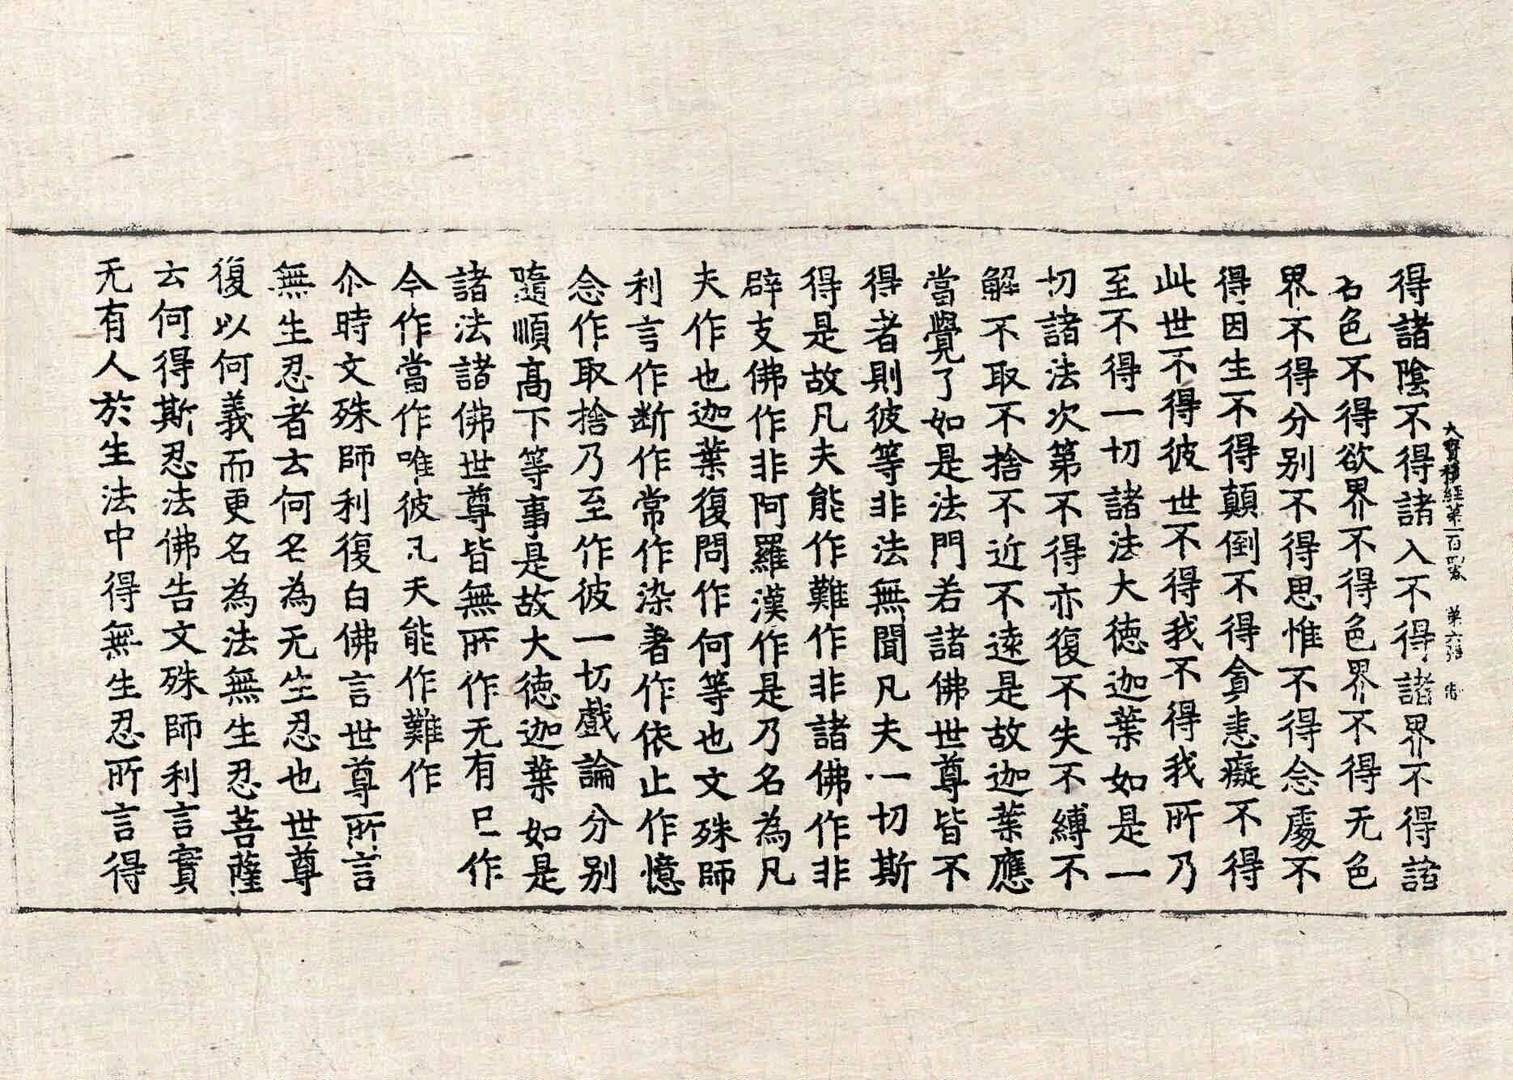 得諸陰不得諸入不得諸界不得諸
大寶積經第一百四卷 第六張
名色不得欲界不得色界不得无色
界不得分别不得思惟不得念處不
得因生不得顛倒不得貪恚癡不得
此世不得彼世不得我不得我所乃
至不得一切諸法大德迦葉如是一
切諸法次第不得亦復不失不縛不
解不取不捨不近不遠是故迦葉應
當覺了如是法門若諸佛世尊皆不
得者則彼等非法無聞凡夫一切斯
得是故凡夫能作難作非諸佛作非
辟支佛作非阿羅漢作是乃名為凡
夫作也迦葉復問作何等也文殊師
利言作断作常作染著作依止作憶
念作取捨乃至作彼一切戲論分别
隨順高下等事是故大德迦葉如是
諸法諸佛世尊皆無所作无有已作
今作當作唯彼凡夫能作難作
尒時文殊師利復白佛言世尊所言
無生忍者云何名為无生忍也世尊
復以何義而更名為法無生忍菩薩
云何得斯忍法佛告文殊師利言實
无有人於生法中得無生忍所言得